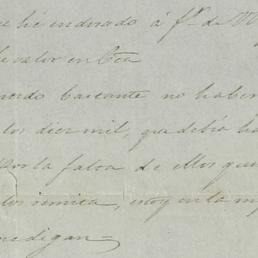 he endosado á fr. de
valor en Cta
bastante no haber
los diez mil, que debía
Por la falta de ellos que
los remita, estoy en la
me digan